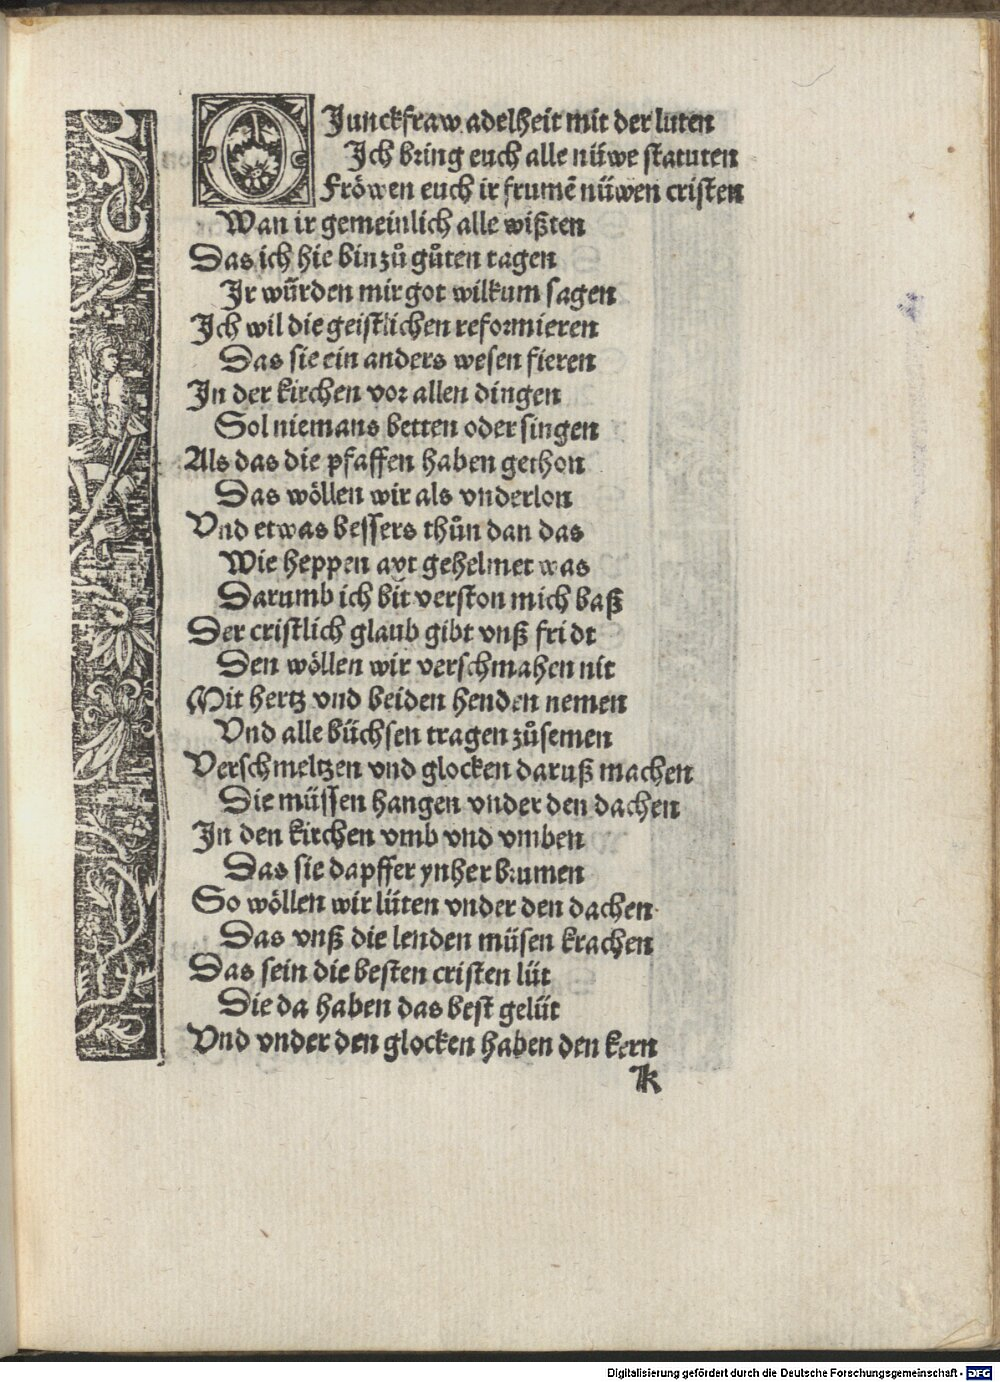 O Junckfraw adelheit mit der luten
Ich bring euch alle nüwe statuten
Fröwen euch ir frumē nüwen cristen
Wan ir gemeinlich alle wißten
Das ich hie bin zů gůten tagen
Ir würden mir got wilkum sagen
Ich wil die geistlichen reformieren
Das sie ein anders wesen fieren
In der kirchen vor allen dingen
Sol niemans betten oder singen
Als das die pfaffen haben gethon
Das wöllen wir als vnderlon
Vnd etwas bessers thůn dan das
Wie heppen ayt gehelmet was
Darumb ich bit verston mich baß
Der cristlich glaub gibt vnß fridt
Den wöllen wir verschmahen nit
Mit hertz vnd beiden henden nemen
Vnd alle büchsen tragen zůsemen
Verschmeltzen vnd glocken daruß machen
Die müssen hangen vnder den dachen
In den kirchen vmb vnd vmben
Das sie dapffer ynher brumen
So wöllen wir lüten vnder den dachen
Das vnß die lenden müsen krachen
Das sein die besten cristen lüt
Die da haben das best gelüt
Vnd vnder den glocken haben den kern
k
Digitalisierung gefördert durch die Deutsche Forschungsgemeinschaft - DFG